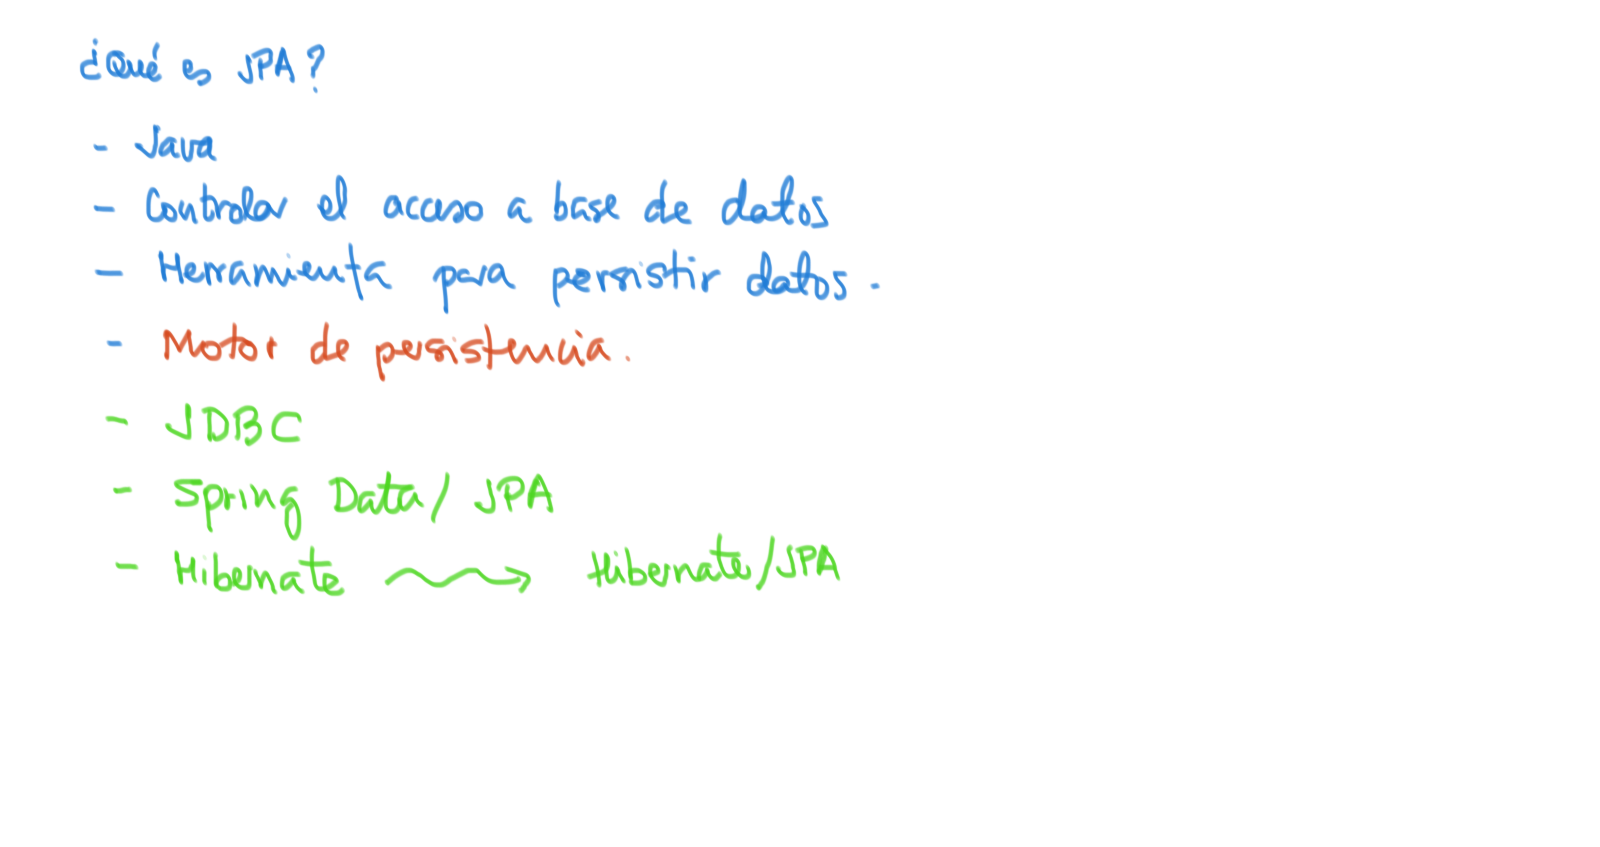 ¿Qué es JPA?
- Java
- Controlar el acceso a base de datos
- Herramienta para persistir datos.
- Motor de persistencia.
- JDBC
- Spring Data / JPA
- Hibernate → Hibernate/JPA